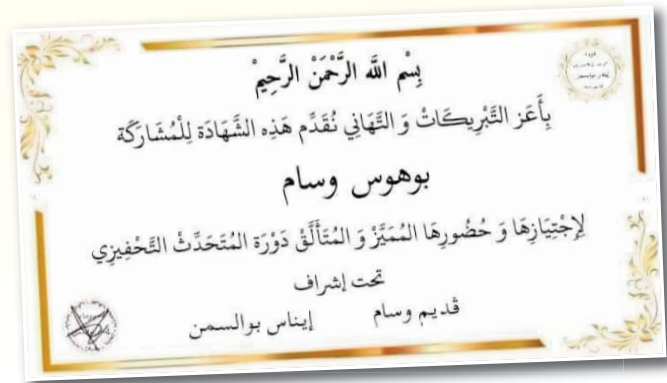 بِسْمِ اللَّه الرَّحْمَنْ الرَّحِيمْ
بِأَعَز التَّبْرِيكَاتْ وَ التَّهَانِي نُقَدِّم هَذِه الشَّهَادَة لِلْمُشَارَكَة
بوهوس وسام
لِإِجْتِيَازِهَا وَ حُضُورِهَا المُمَيَّزْ وَ المُتَأَلِّقْ دَوْرَة المُتَحَدِّثْ التَّحْفِيزِي
تحت إشراف
ڨديم وسام إيناس بوالسمن